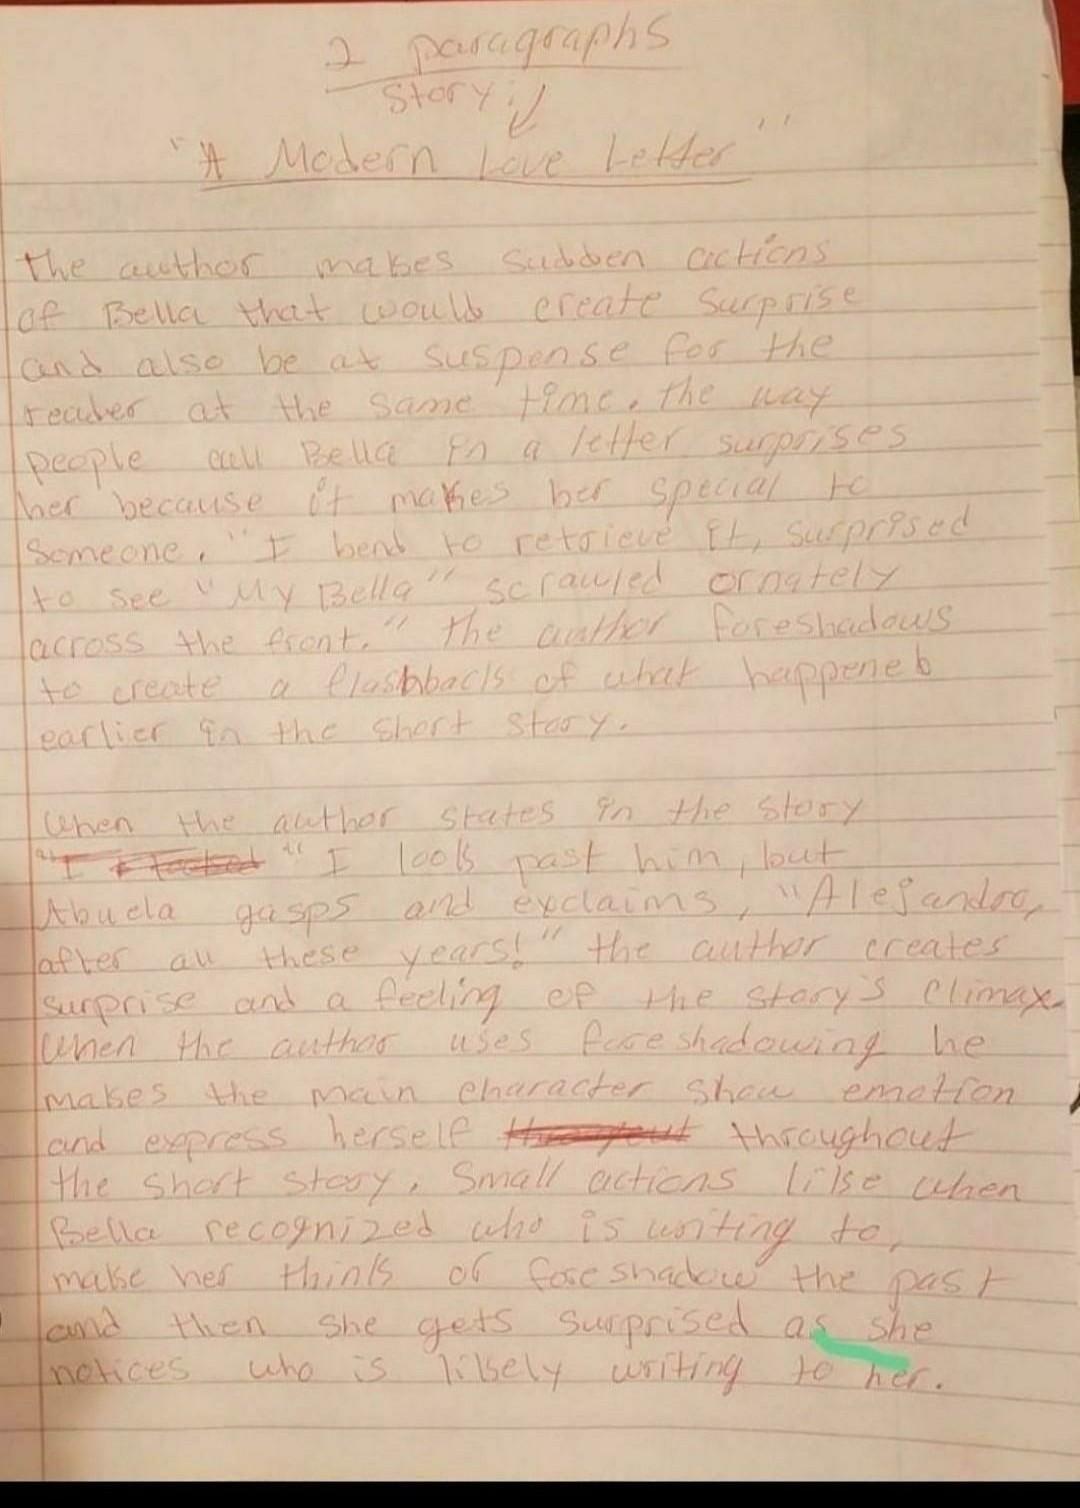 2 paragraphs
Story:
"A Modern Love Letter"
The author makes sudden actions
of Bella that would create surprise
and also be at suspense for the
reader at the same time. The way
people call Bella in a letter surprises
her because it makes her special to
someone. "I bend to retrieve it, surprised
to see "My Bella" scrawled ornately
across the front." The author foreshadows
to create a flashback of what happened
earlier in the short story.
When the author states in the story
"I look past him, but
Abuela gasps and exclaims, "Alejandro,
after all these years!" the author creates
surprise and a feeling of the story's climax.
When the author uses foreshadowing he
makes the main character show emotion
and express herself throughout
the short story. Small actions like when
Bella recognized who is writing to,
make her think or foreshadow the past
and then she gets surprised as she
notices who is likely writing to her.